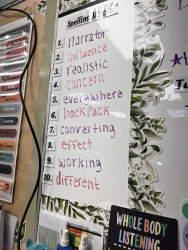 Spelling
1. Narrator
2. influence
3. realistic
4. concern
5. everywhere
6. backpack
7. converting
8. effect
9. working
10. different
WHOLE BODY
LISTENING